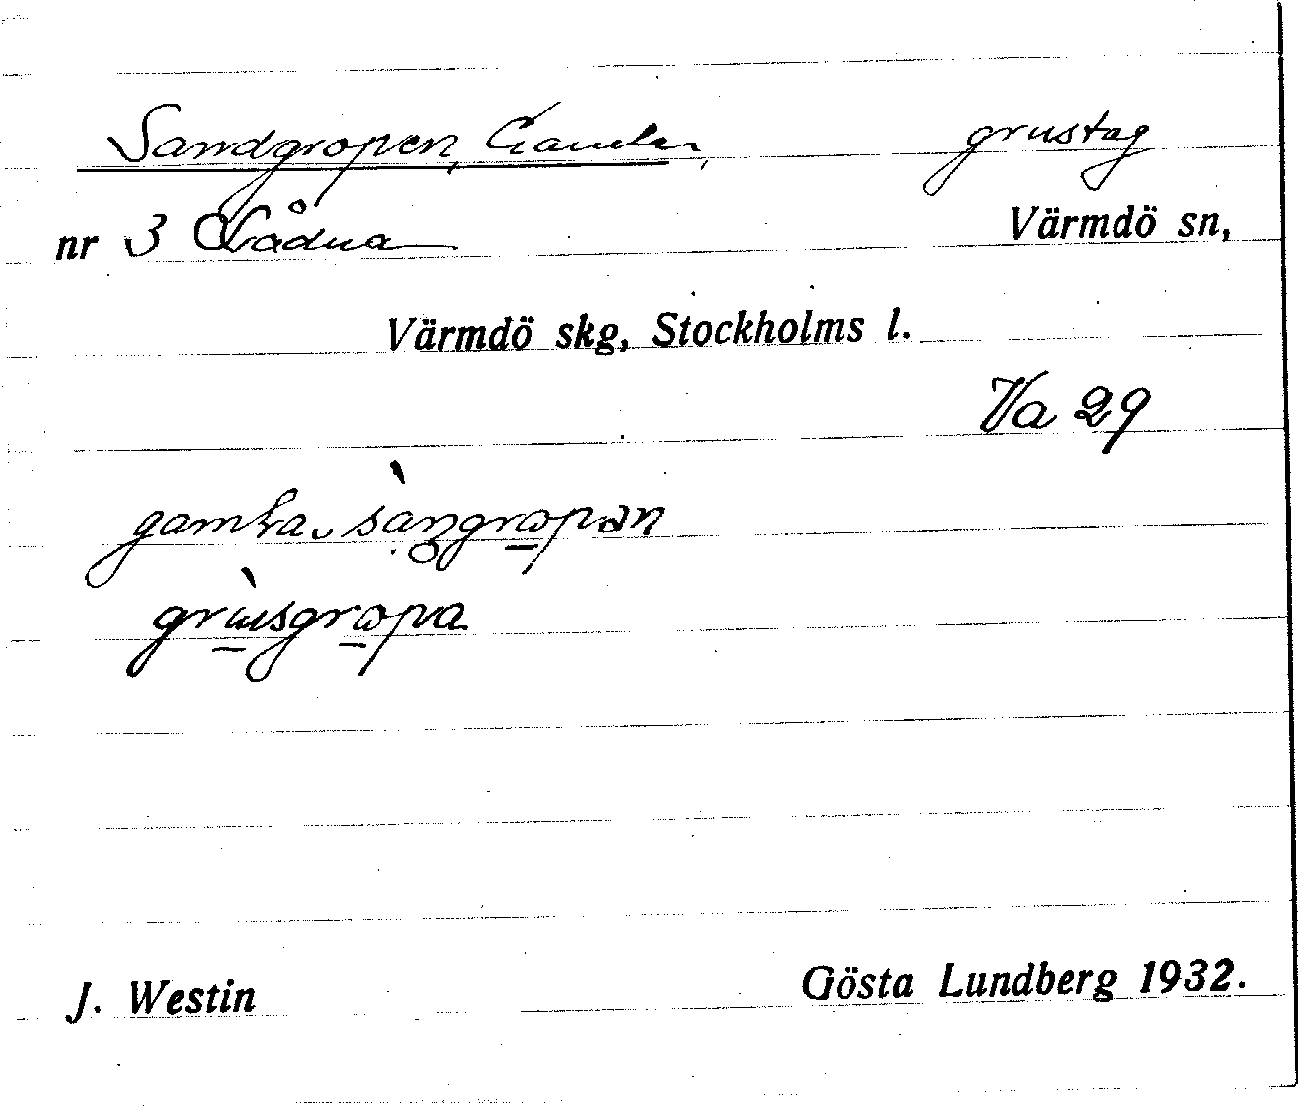 Sandgropen, Gamla, grustag
nr 3 Nådna Värmdö sn,
Värmdö skg, Stockholms l.
Va 29
gamḷa sàngrɷpən
grùsgrɷpa
J. Westin Gösta Lundberg 1932.